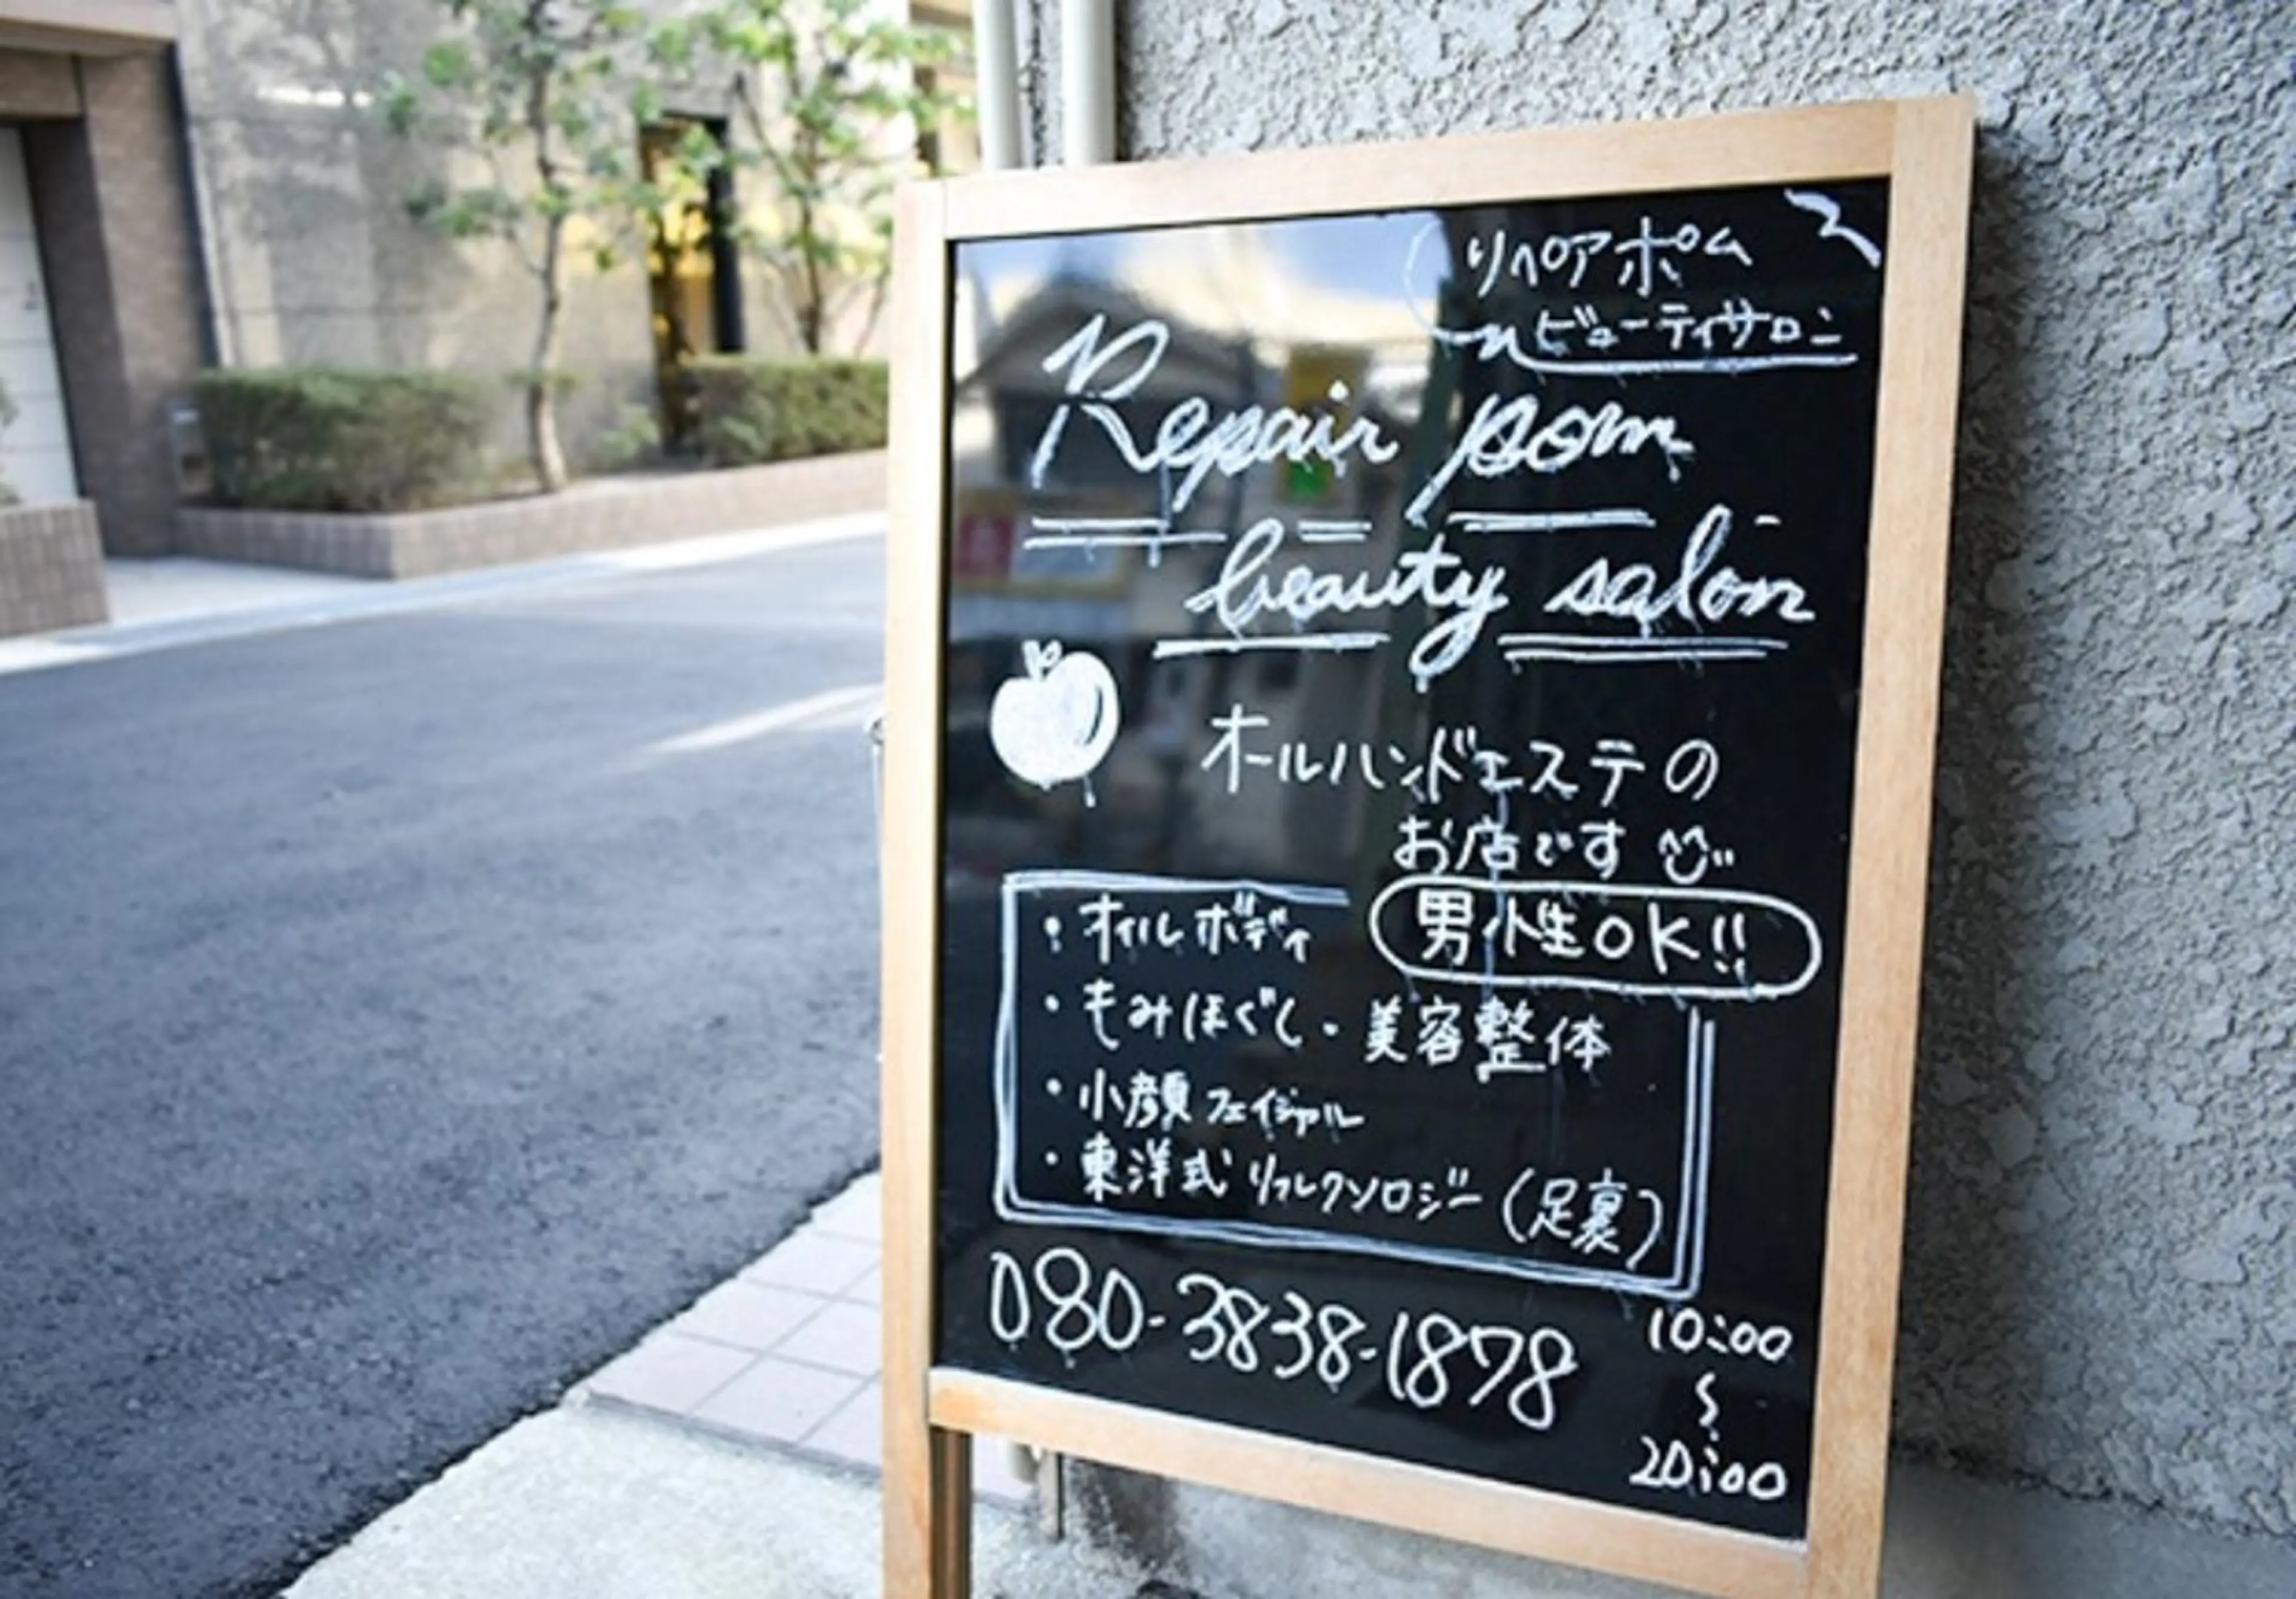 リペアポム
ビューティサロン
Repair pom
beauty salon
オールハンドエステの
お店です
男性OK!!
・オイルボディ
・もみほぐし・美容整体
・小顔フェイシャル
・東洋式リフレクソロジー(足裏)
080-3838-1878
10:00
〜
20:00